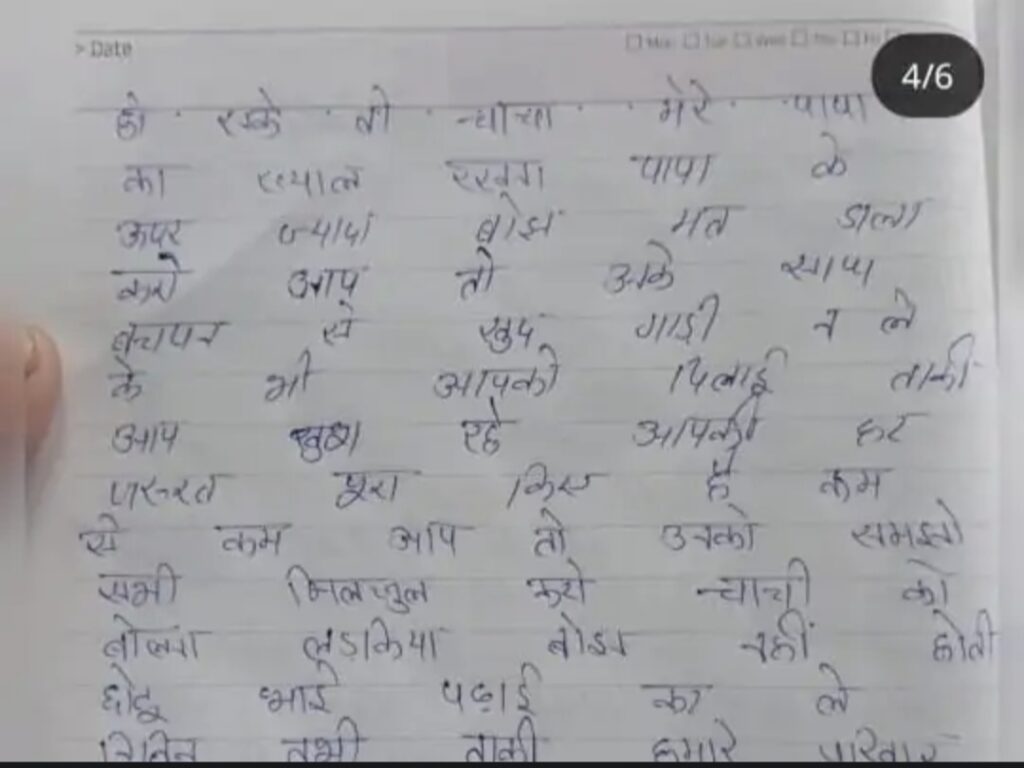 > Date
4/6
हो सके तो चाचा मेरे पापा
का ख्याल रखना पापा के
ऊपर ज्यादा बोझ मत डाला
करो आप तो उनके साथ
बचपन से खुद गाडी न ले
के भी आपको दिलाई ताकी
आप खुश रहे आपकी हर
जरुरत पूरा किए है कम
से कम आप तो उनको समझो
सभी मिलजुल करो चाची को
बोलना लड़किया बोझ नहीं होती
छोटू भाई पढ़ाई कर ले
तभी ताकी हमारे परिवार